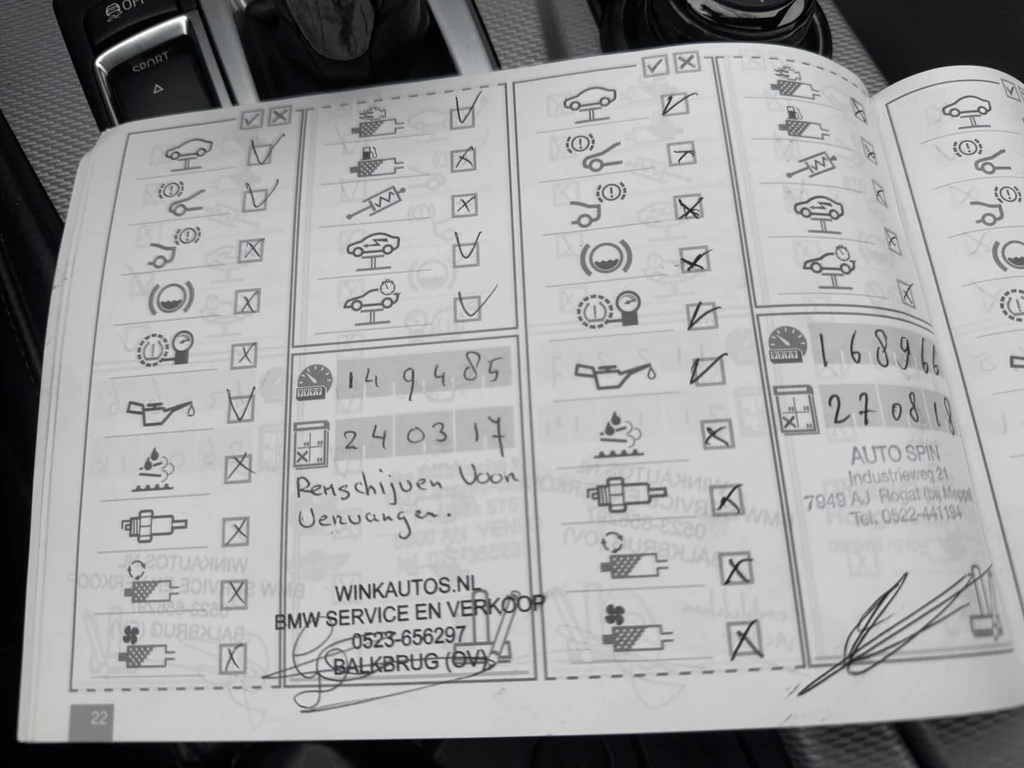 OFF
SPORT
149485
240317
Remschijven Voor
Vervangen.
WINKAUTOS.NL
BMW SERVICE EN VERKOOP
0523-656297
BALKBRUG (OV)
22
168966
270818
AUTO SPIN
Industrieweg 21
7949 AJ Rogat (bij Meppel)
Tel. 0522-441184